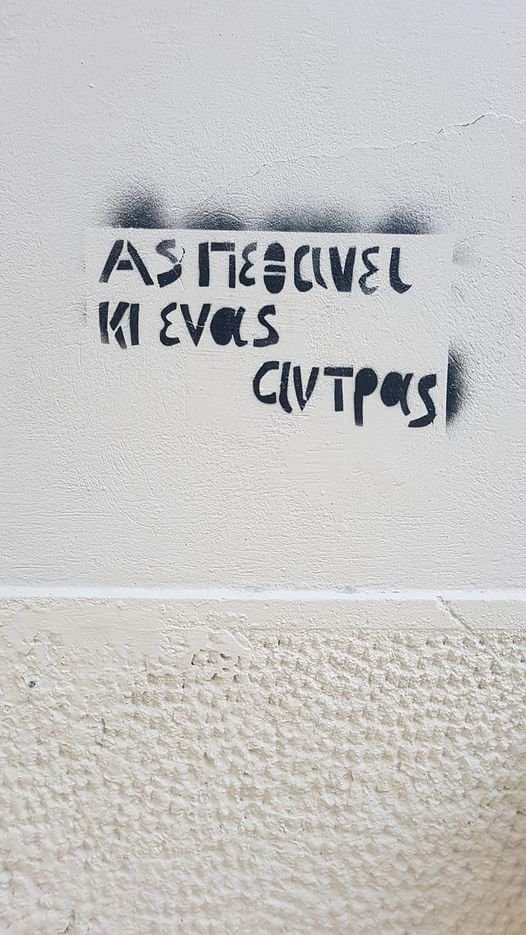 Ας πεθανει
κι ενας
αντρας